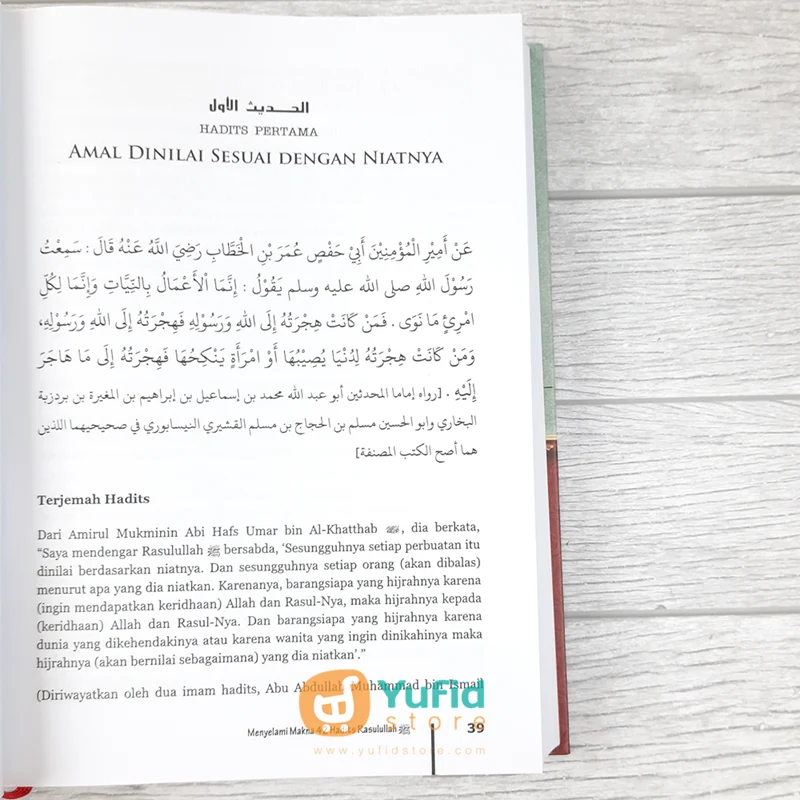 الحديث الأول
HADITS PERTAMA
AMAL DINILAI SESUAI DENGAN NIATNYA
عَنْ أَمِيْرِ الْمُؤْمِنِيْنَ أَبِيْ حَفْصٍ عُمَرَ بْنِ الْخَطَّابِ رَضِيَ اللَّهُ عَنْهُ قَالَ : سَمِعْتُ
رَسُوْلَ اللهِ صلى الله عليه وسلم يَقُوْلُ : إِنَّمَا اْلأَعْمَالُ بِالنِّيَّاتِ وَإِنَّمَا لِكُلِّ
امْرِئٍ مَا نَوَى . فَمَنْ كَانَتْ هِجْرَتُهُ إِلَى اللهِ وَرَسُوْلِهِ فَهِجْرَتُهُ إِلَى اللهِ وَرَسُوْلِهِ،
وَمَنْ كَانَتْ هِجْرَتُهُ لِدُنْيَا يُصِيْبُهَا أَوْ امْرَأَةٍ يَنْكِحُهَا فَهِجْرَتُهُ إِلَى مَا هَاجَرَ
إِلَيْهِ . [رواه إماما المحدثين أبو عبد الله محمد بن إسماعيل بن إبراهيم بن المغيرة بن بردزبة
البخاري وابو الحسين مسلم بن الحجاج بن مسلم القشيري النيسابوري في صحيحيهما اللذين
هما أصح الكتب المصنفة]
Terjemah Hadits
Dari Amirul Mukminin Abi Hafs Umar bin Al-Khatthab , dia berkata,
“Saya mendengar Rasulullah ﷺ bersabda, ‘Sesungguhnya setiap perbuatan itu
dinilai berdasarkan niatnya. Dan sesungguhnya setiap orang (akan dibalas)
menurut apa yang dia niatkan. Karenanya, barangsiapa yang hijrahnya karena
(ingin mendapatkan keridhaan) Allah dan Rasul-Nya, maka hijrahnya kepada
(keridhaan) Allah dan Rasul-Nya. Dan barangsiapa yang hijrahnya karena
dunia yang dikehendakinya atau karena wanita yang ingin dinikahinya maka
hijrahnya (akan bernilai sebagaimana) yang dia niatkan’.”
(Diriwayatkan oleh dua imam hadits, Abu Abdullah Muhammad bin Ismail
YuFid
store
Menyelami Makna 42 Hadits Rasulullah ﷺ 39
www.yufidstore.com